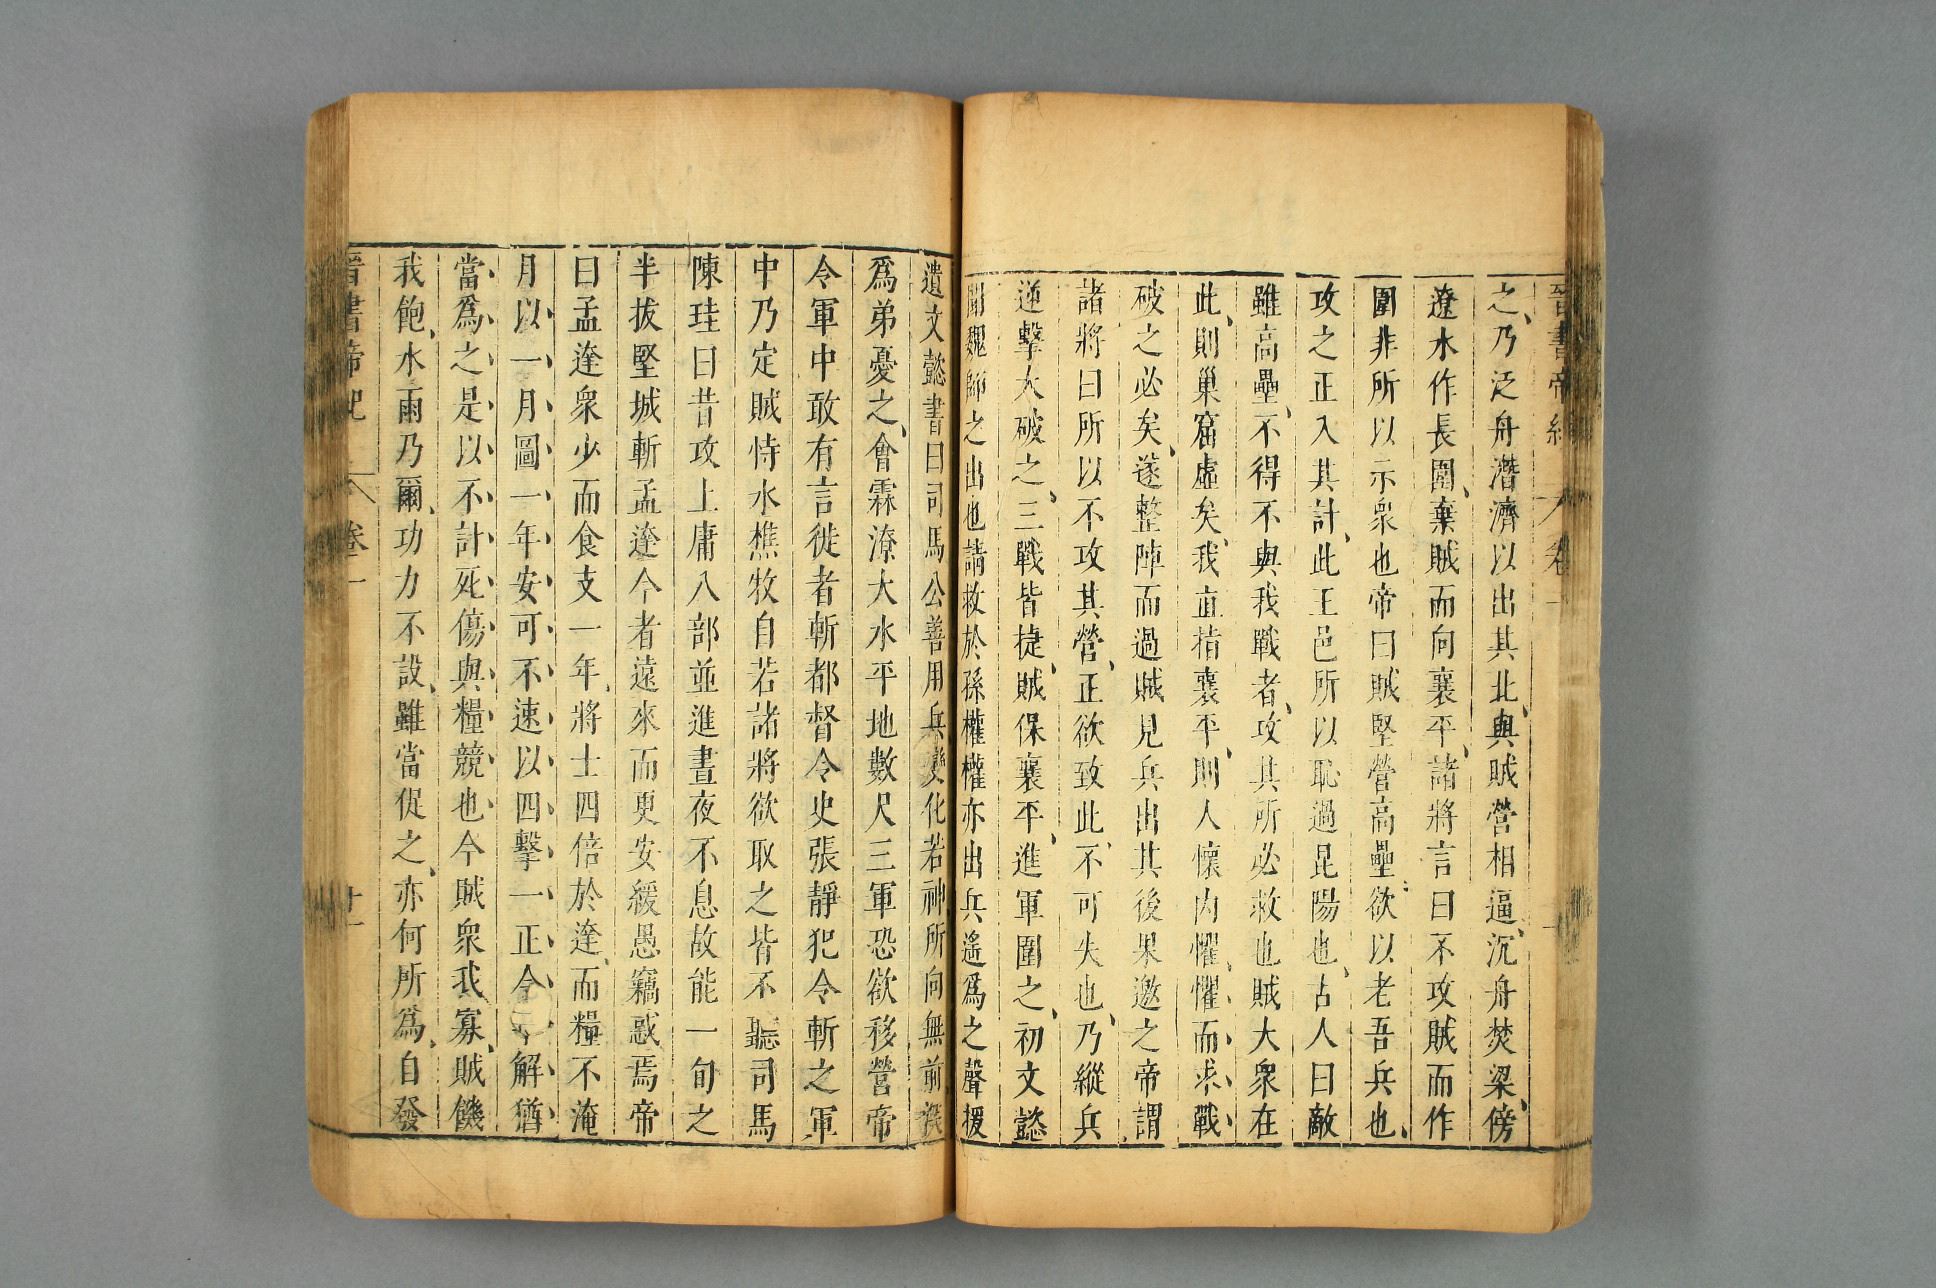 晉書帝紀 卷一
之乃泛舟潛濟以出其北與賊營相逼沉舟焚梁傍
遼水作長圍棄賊而向襄平諸將言曰不攻賊而作
圍非所以示衆也帝曰賊堅營高壘欲以老吾兵也
攻之正入其計此王邑所以恥過昆陽也古人曰敵
雖高壘不得不與我戰者攻其所必救也賊大衆在
此則巢窟虛矣我直指襄平則人懷內懼懼而求戰
破之必矣遂整陣而過賊見兵出其後果邀之帝謂
諸將曰所以不攻其營正欲致此不可失也乃縱兵
逆擊大破之三戰皆捷賊保襄平進軍圍之初文懿
聞魏師之出也請救於孫權權亦出兵遙爲之聲援
遺文懿書曰司馬公善用兵變化若神所向無前深
爲弟憂之會霖潦大水平地數尺三軍恐欲移營帝
令軍中敢有言徙者斬都督令史張靜犯令斬之軍
中乃定賊恃水樵牧自若諸將欲取之皆不聽司馬
陳珪曰昔攻上庸八部並進晝夜不息故能一旬之
半拔堅城斬孟達今者遠來而更安緩愚竊惑焉帝
曰孟達衆少而食支一年將士四倍於達而糧不淹
月以一月圖一年安可不速以四擊一正令半解猶
當爲之是以不計死傷與糧競也今賊衆我寡賊饑
我飽水雨乃爾功力不設雖當促之亦何所爲自發
晉書帝紀 卷一 十一